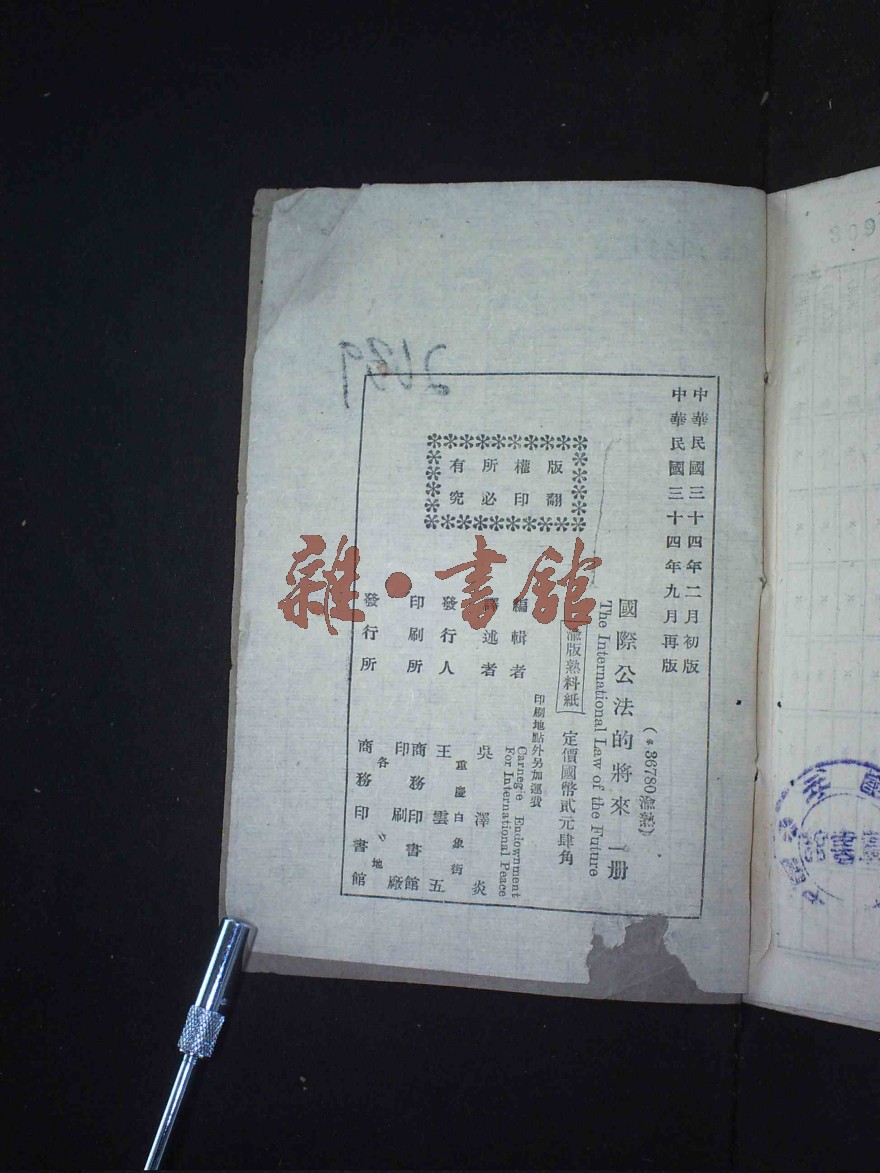 中華民國三十四年二月初版
中華民國三十四年九月再版
(﹡36780渝熟)
國際公法的將來一册
The International Law of the Future
渝版熟料紙
定價國幣貳元肆角
印刷地點外另加運費
編輯者
Carnegie Endownment
For International Peace
譯述者 吳澤炎
發行人 王雲五
重慶白象街
印刷所 商務印書館
印刷廠
發行所 商務印書館
各地
版權所有
翻印必究
2639
雜·書館